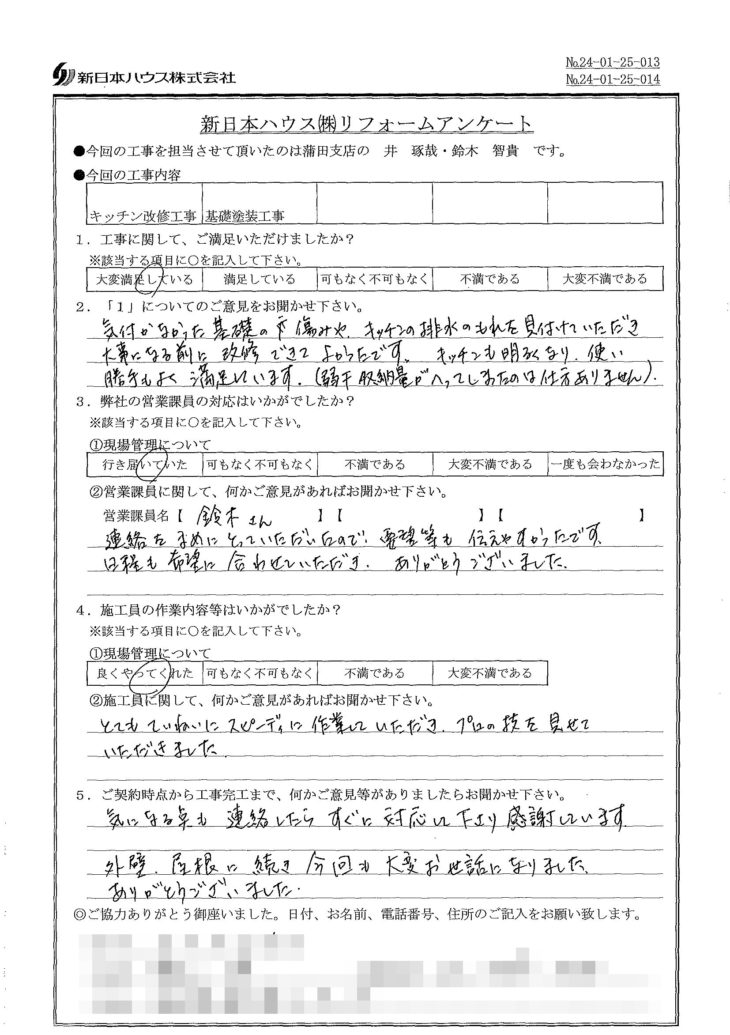 新日本ハウス株式会社
№24-01-25-013
№24-01-25-014
新日本ハウス㈱リフォームアンケート
●今回の工事を担当させて頂いたのは蒲田支店の 井 琢哉・鈴木 智貴 です。
●今回の工事内容
キッチン改修工事 基礎塗装工事
1．工事に関して、ご満足いただけましたか？
※該当する項目に○を記入して下さい。
大変満足している 満足している 可もなく不可もなく 不満である 大変不満である
2．「1」についてのご意見をお聞かせ下さい。
気付かなかった基礎の傷みや、キッチンの排水のもれを見付けていただき
大事になる前に改修できてよかったです。 キッチンも明るくなり、使い
勝手もよく満足しています。（若干収納量がへってしまったのは仕方ありません）.
3．弊社の営業課員の対応はいかがでしたか？
※該当する項目に○を記入して下さい。
①現場管理について
行き届いていた 可もなく不可もなく 不満である 大変不満である 一度も会わなかった
②営業課員に関して、何かご意見があればお聞かせ下さい。
営業課員名【 鈴木さん 】【 】【 】
連絡をまめにとっていただいたので、要望等も伝えやすかったです。
日程も希望に合わせていただき、ありがとうございました。
4．施工員の作業内容等はいかがでしたか？
※該当する項目に○を記入して下さい。
①現場管理について
良くやってくれた 可もなく不可もなく 不満である 大変不満である
②施工員に関して、何かご意見があればお聞かせ下さい。
とてもていねいにスピーディに作業していただき、プロの技を見せて
いただきました。
5．ご契約時点から工事完工まで、何かご意見等がありましたらお聞かせ下さい。
気になる点も連絡したらすぐに対応して下さり感謝しています。
外壁、屋根に続き今回も大変お世話になりました。
ありがとうございました.
◎ご協力ありがとう御座いました。日付、お名前、電話番号、住所のご記入をお願い致します。